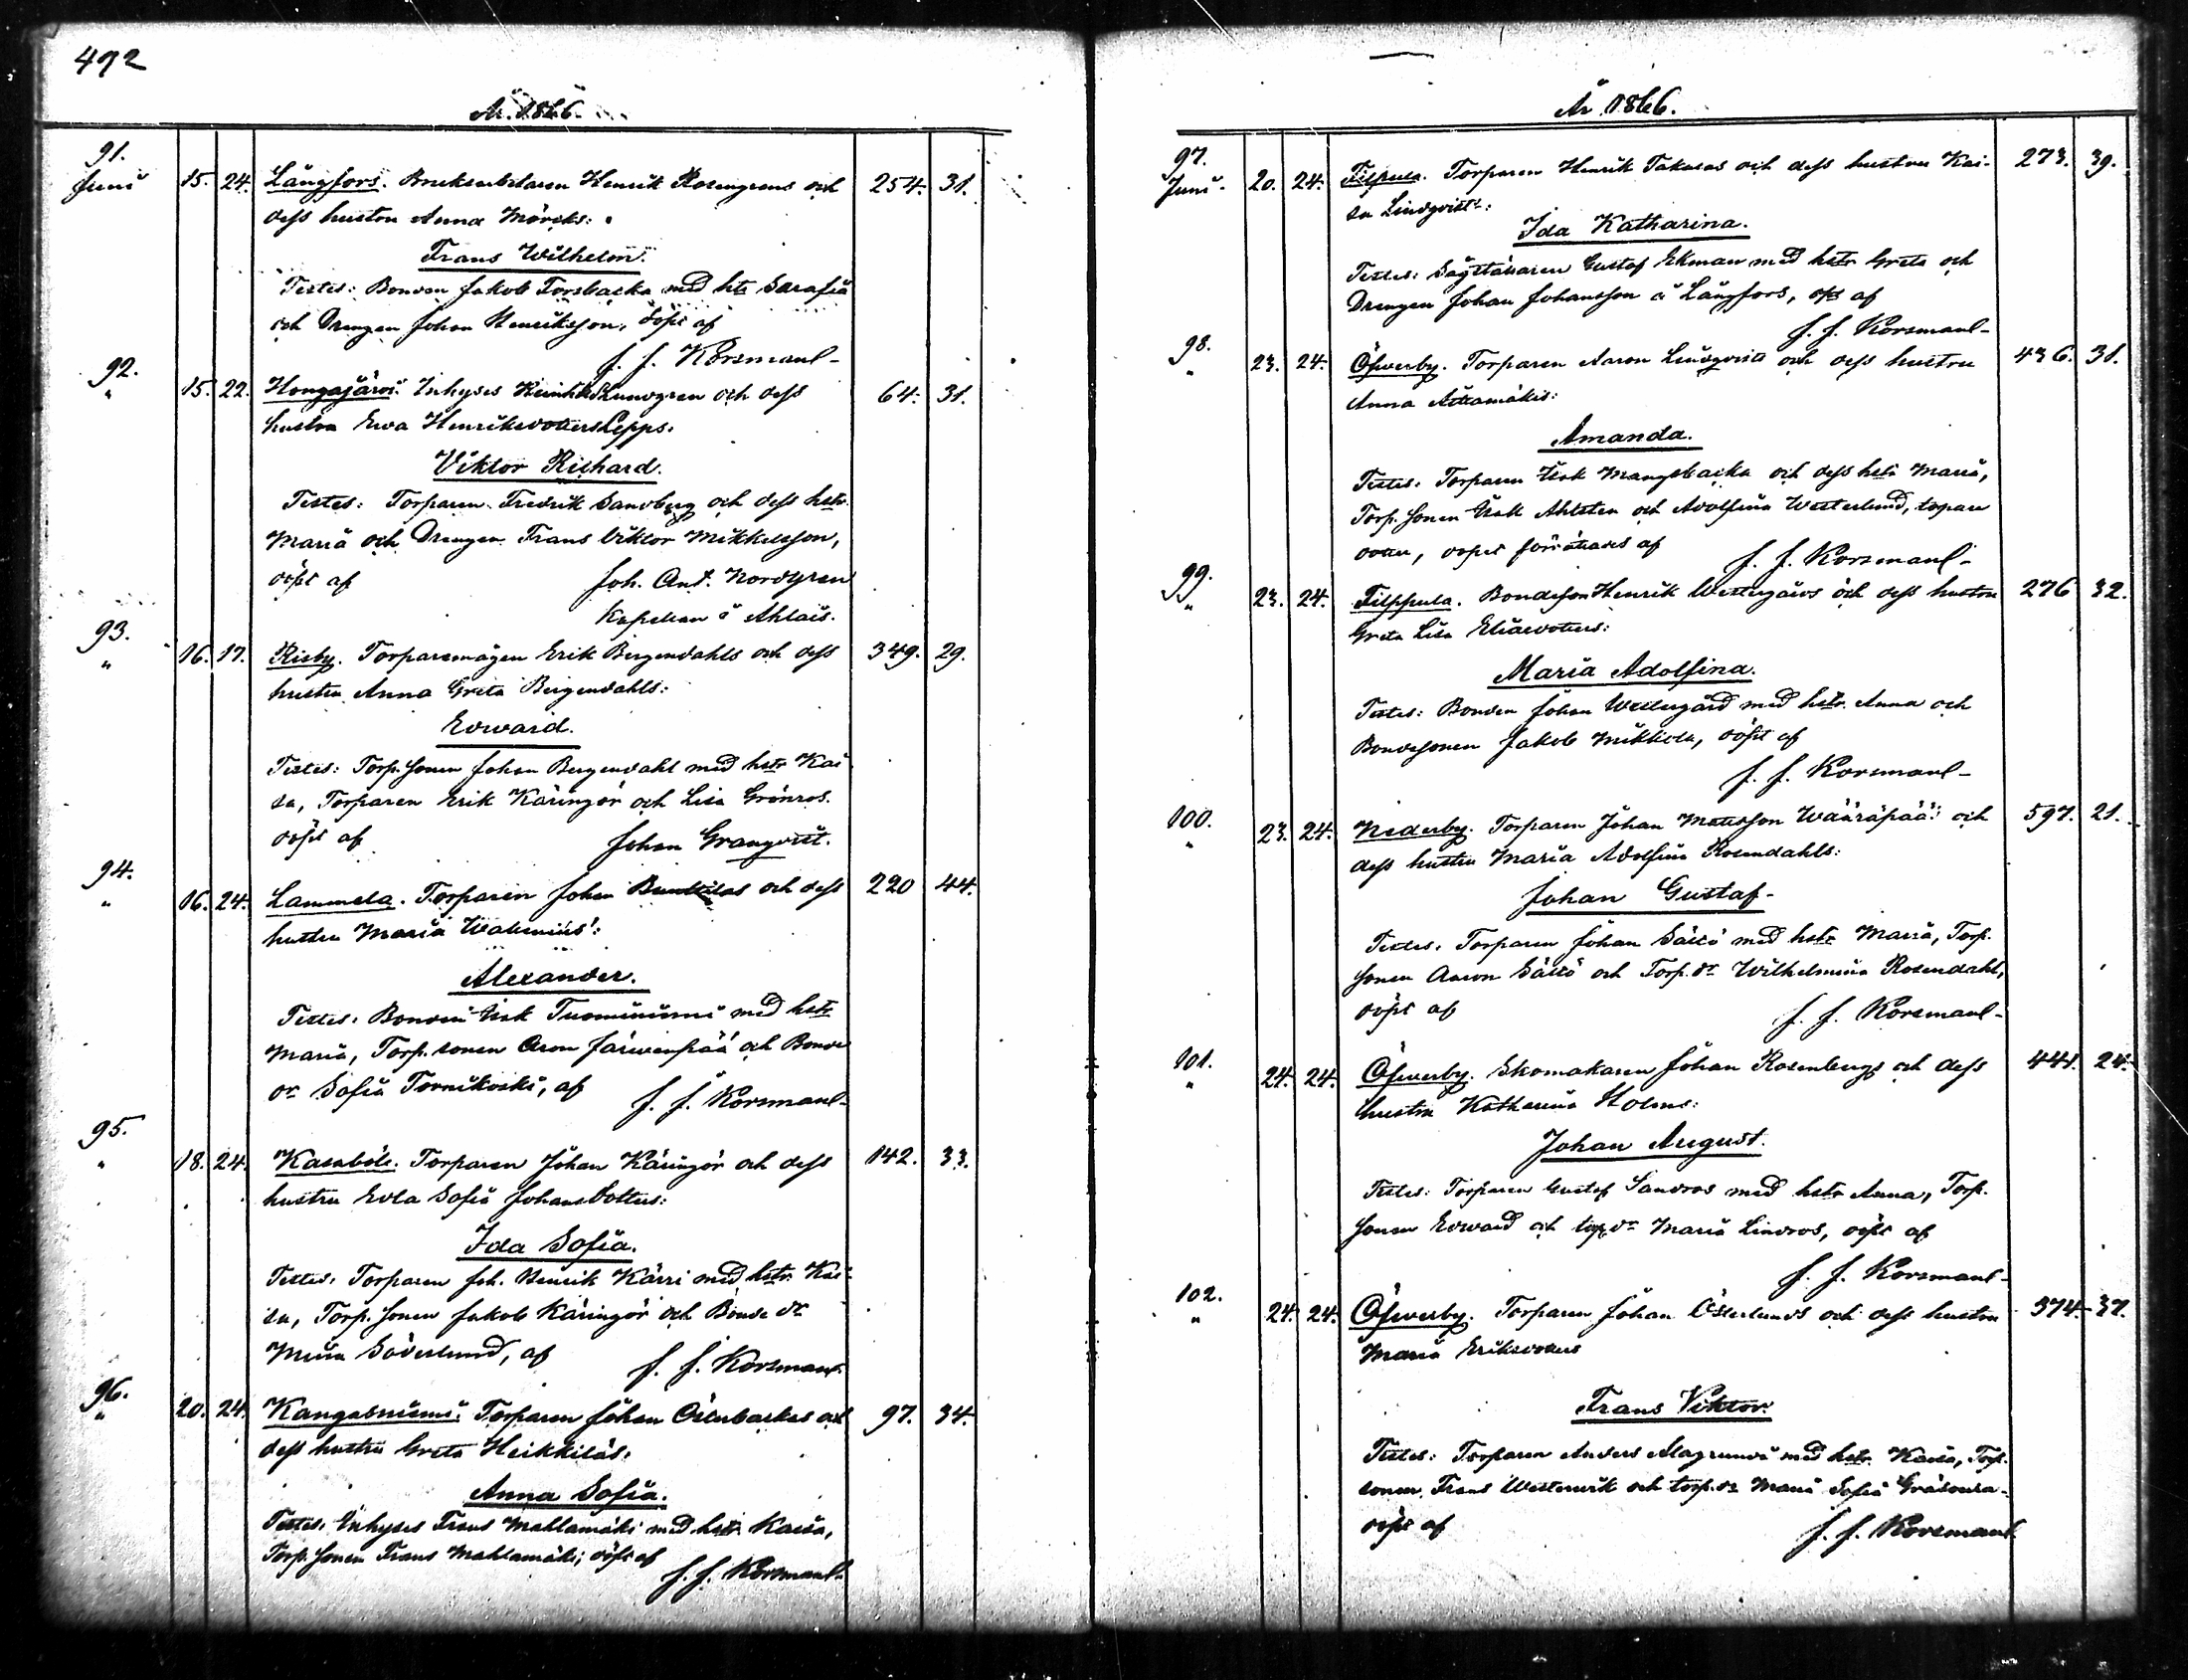 492
År 1866.
91.
Juni 15. 24. Långfors. Bruksarbetaren Henrik Rosengrens och 254. 31.
dess hustru Anna Mörcks:
Frans Wilhelm.
Testes: Bonden Jakob Forsbacka med hst Serafia
och Drengen Johan Henriksson, döpt af
J. J. Korsman
92.
" 15. 22. Hongajärvi. Inhyses Lundgren och dess 64. 31.
hustru Ewa Henriksdotters Lepps.
Viktor Richard.
Testes: Torparen Fredrik Sandberg och dess hstr.
Maria och Drengen Frans Viktor Mikkelsson,
döpt af Joh. Ant. Nordgren
Kapellan i Ahlais.
93.
" 16. 17. Kisby. Torparemågen Erik Bergendahls och dess 349. 29.
hustru Anna Greta Bergendahls:
Edward.
Testes: Torp.sonen Johan Bergendahl med hstr Kai
sa, Torparen Erik Käringör och Lisa Grönros.
döpt af Johan Granqvist.
94.
" 16. 24. Lammela. Torparen Johan och dess 220 44.
hustru Maria
Alexander.
Testes: Bonden Isak Tuominiemi med hstr
Maria, Torp.sonen Aron Järwenpää och Bonde
dr Sofia Tornikoski, af J. J. Korsman
95.
" 18. 24. Kasaböle. Torparen Johan Käringör och dess 142. 33.
hustru Edla Sofia Johansdotters:
Ida Sofia.
Testes: Torparen Joh. Henrik Kärri med hstr. Kai-
sa, Torp.sonen Jakob Käringör och Bonde dr
Mina Söderlund, af J. J. Korsman
96.
" 20. 24. Kangasniemi. Torparen Johan Österbackas och 97. 34.
dess hustru Greta Heikkiläs:
Anna Sofia.
Testes: Inhyses Frans Mahlamäki med hstr Kaisa,
Torp.sonen Frans Mahlamäki, döpt af J. J. Korsman
År 1866.
97.
Juni 20. 24. Filppula. Torparen Henrik Takalas och dess hustru Kai- 273. 39.
sa Lindqvists:
Ida Katharina.
Testes: Sågställaren Gustaf Ekman med hstr Greta och
Drengen Johan Johansson å Långfors, af
J. J. Korsman
98.
" 23. 24. Öfwerby. Torparen Aaron Lindqvists och dess hustru 436. 31.
Anna
Amanda.
Testes: Torparen Isak Mangsbacka och dess hstr Maria,
Torp.sonen Isak Ahlsten och Adolfina Westerlund, torpare
dotter, döpt af J. J. Korsman
99.
" 23. 24. Filppula. Bondeson Henrik Westergårds och dess hustru 276 32.
Greta Lisa Eliaedotters:
Maria Adolfina.
Testes: Bonden Johan Westergård med hstr. Anna och
Bondesonen Jakob Mikkola, döpt af
J. J. Korsman
100.
" 23. 24. Nederby. Torparen Johan Matsson Wääräpää: och 597. 21.
dess hustru Maria Adolfina Rosendahls:
Johan Gustaf
Testes: Torparen Johan Sältö med hstr Maria, Torp.
sonen Aaron Sältö och Torp.dr Wilhelmina Rosendahl,
döpt af J. J. Korsman
101.
" 24. 24. Öfwerby. Skomakaren Johan Rosenbergs och dess 441. 24.
hustru Katharina Holms:
Johan August.
Testes: Torparen Gustaf Sandros med hstr Anna, Torp.
sonen Edward och torp.dr Maria Lindros, döpt af
J. J. Korsman
102.
" 24. 24. Öfwerby. Torparen Johan Österlunds och dess hustru 574. 37.
Maria Eriksdotters
Frans Viktor.
Testes: Torparen Anders Alagrundi med hstr. Kaisa, Torp.
sonen Frans Westerwik och torp.dr Maria Sofia
döpt af J. J. Korsman